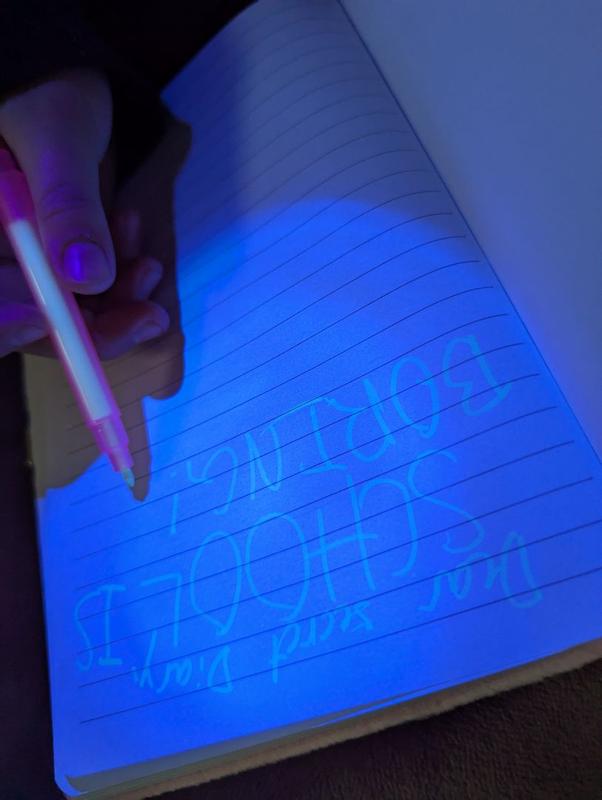 Dear secret Diary,
SCHOOL IS
BORING!